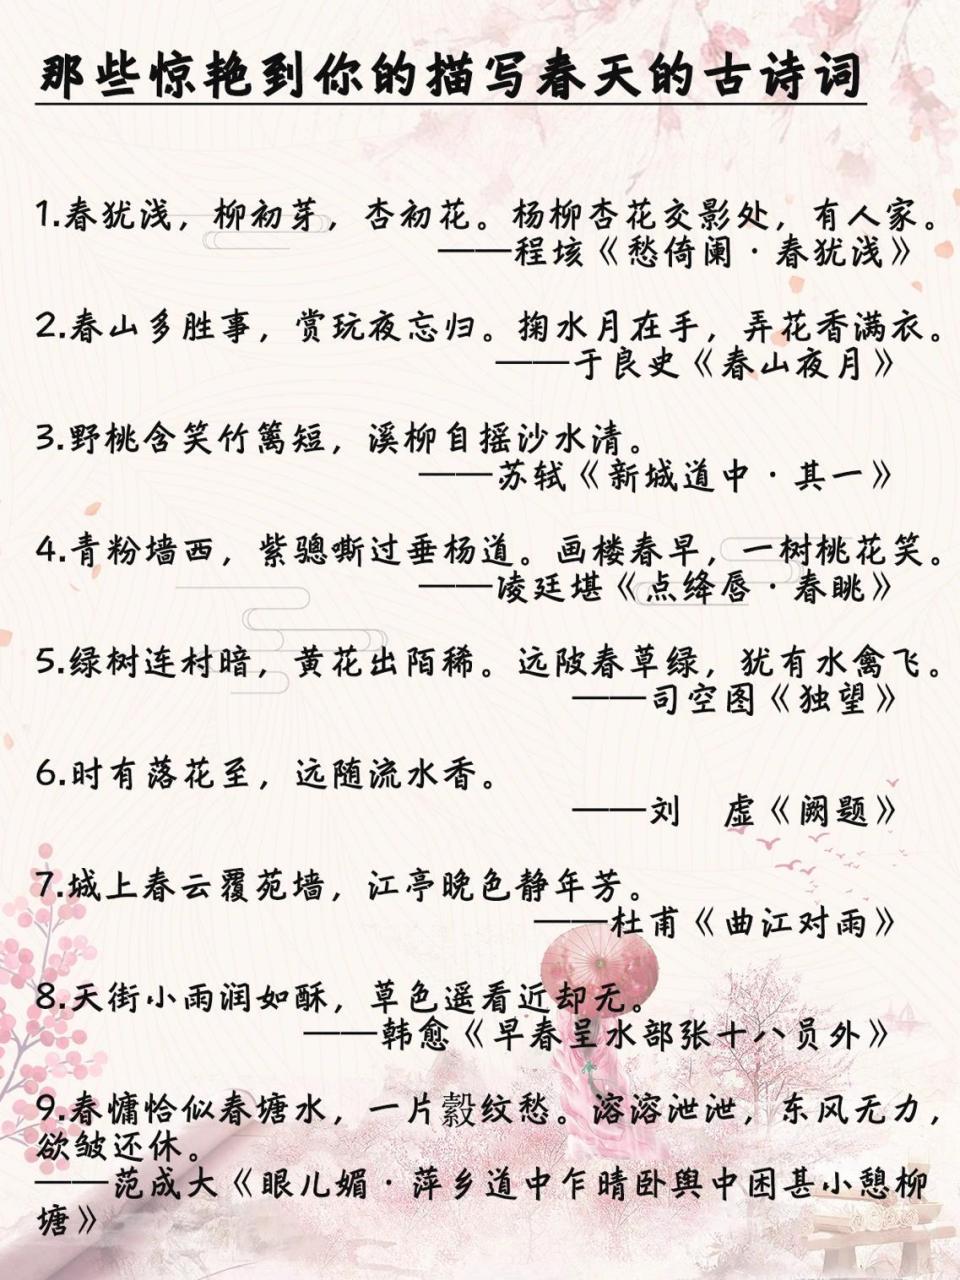 那些惊艳到你的描写春天的古诗词
1.春犹浅，柳初芽，杏初花。杨柳杏花交影处，有人家。
——程垓《愁倚阑·春犹浅》
2.春山多胜事，赏玩夜忘归。掬水月在手，弄花香满衣。
——于良史《春山夜月》
3.野桃含笑竹篱短，溪柳自摇沙水清。
——苏轼《新城道中·其一》
4.青粉墙西，紫骢嘶过垂杨道。画楼春早，一树桃花笑。
——凌廷堪《点绛唇·春眺》
5.绿树连村暗，黄花出陌稀。远陂春草绿，犹有水禽飞。
——司空图《独望》
6.时有落花至，远随流水香。
——刘　虚《阙题》
7.城上春云覆苑墙，江亭晚色静年芳。
——杜甫《曲江对雨》
8.天街小雨润如酥，草色遥看近却无。
——韩愈《早春呈水部张十八员外》
9.春慵恰似春塘水，一片縠纹愁。溶溶泄泄，东风无力，
欲皱还休。
——范成大《眼儿媚·萍乡道中乍晴卧舆中困甚小憩柳
塘》